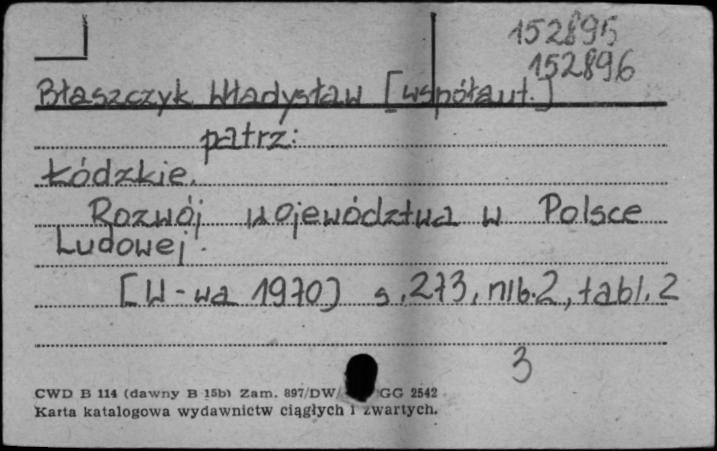 152895
152896
Błaszczyk Władysław [współaut.]
patrz:
Łódzkie.
Rozwój województwa w Polsce
Ludowej.
[W-wa 1970] s. 273, nlb. 2, tabl. 2
3
CWD B 114 (dawny B 15b) Zam. 897/DW/ GG 2542
Karta katalogowa wydawnictw ciągłych i zwartych.